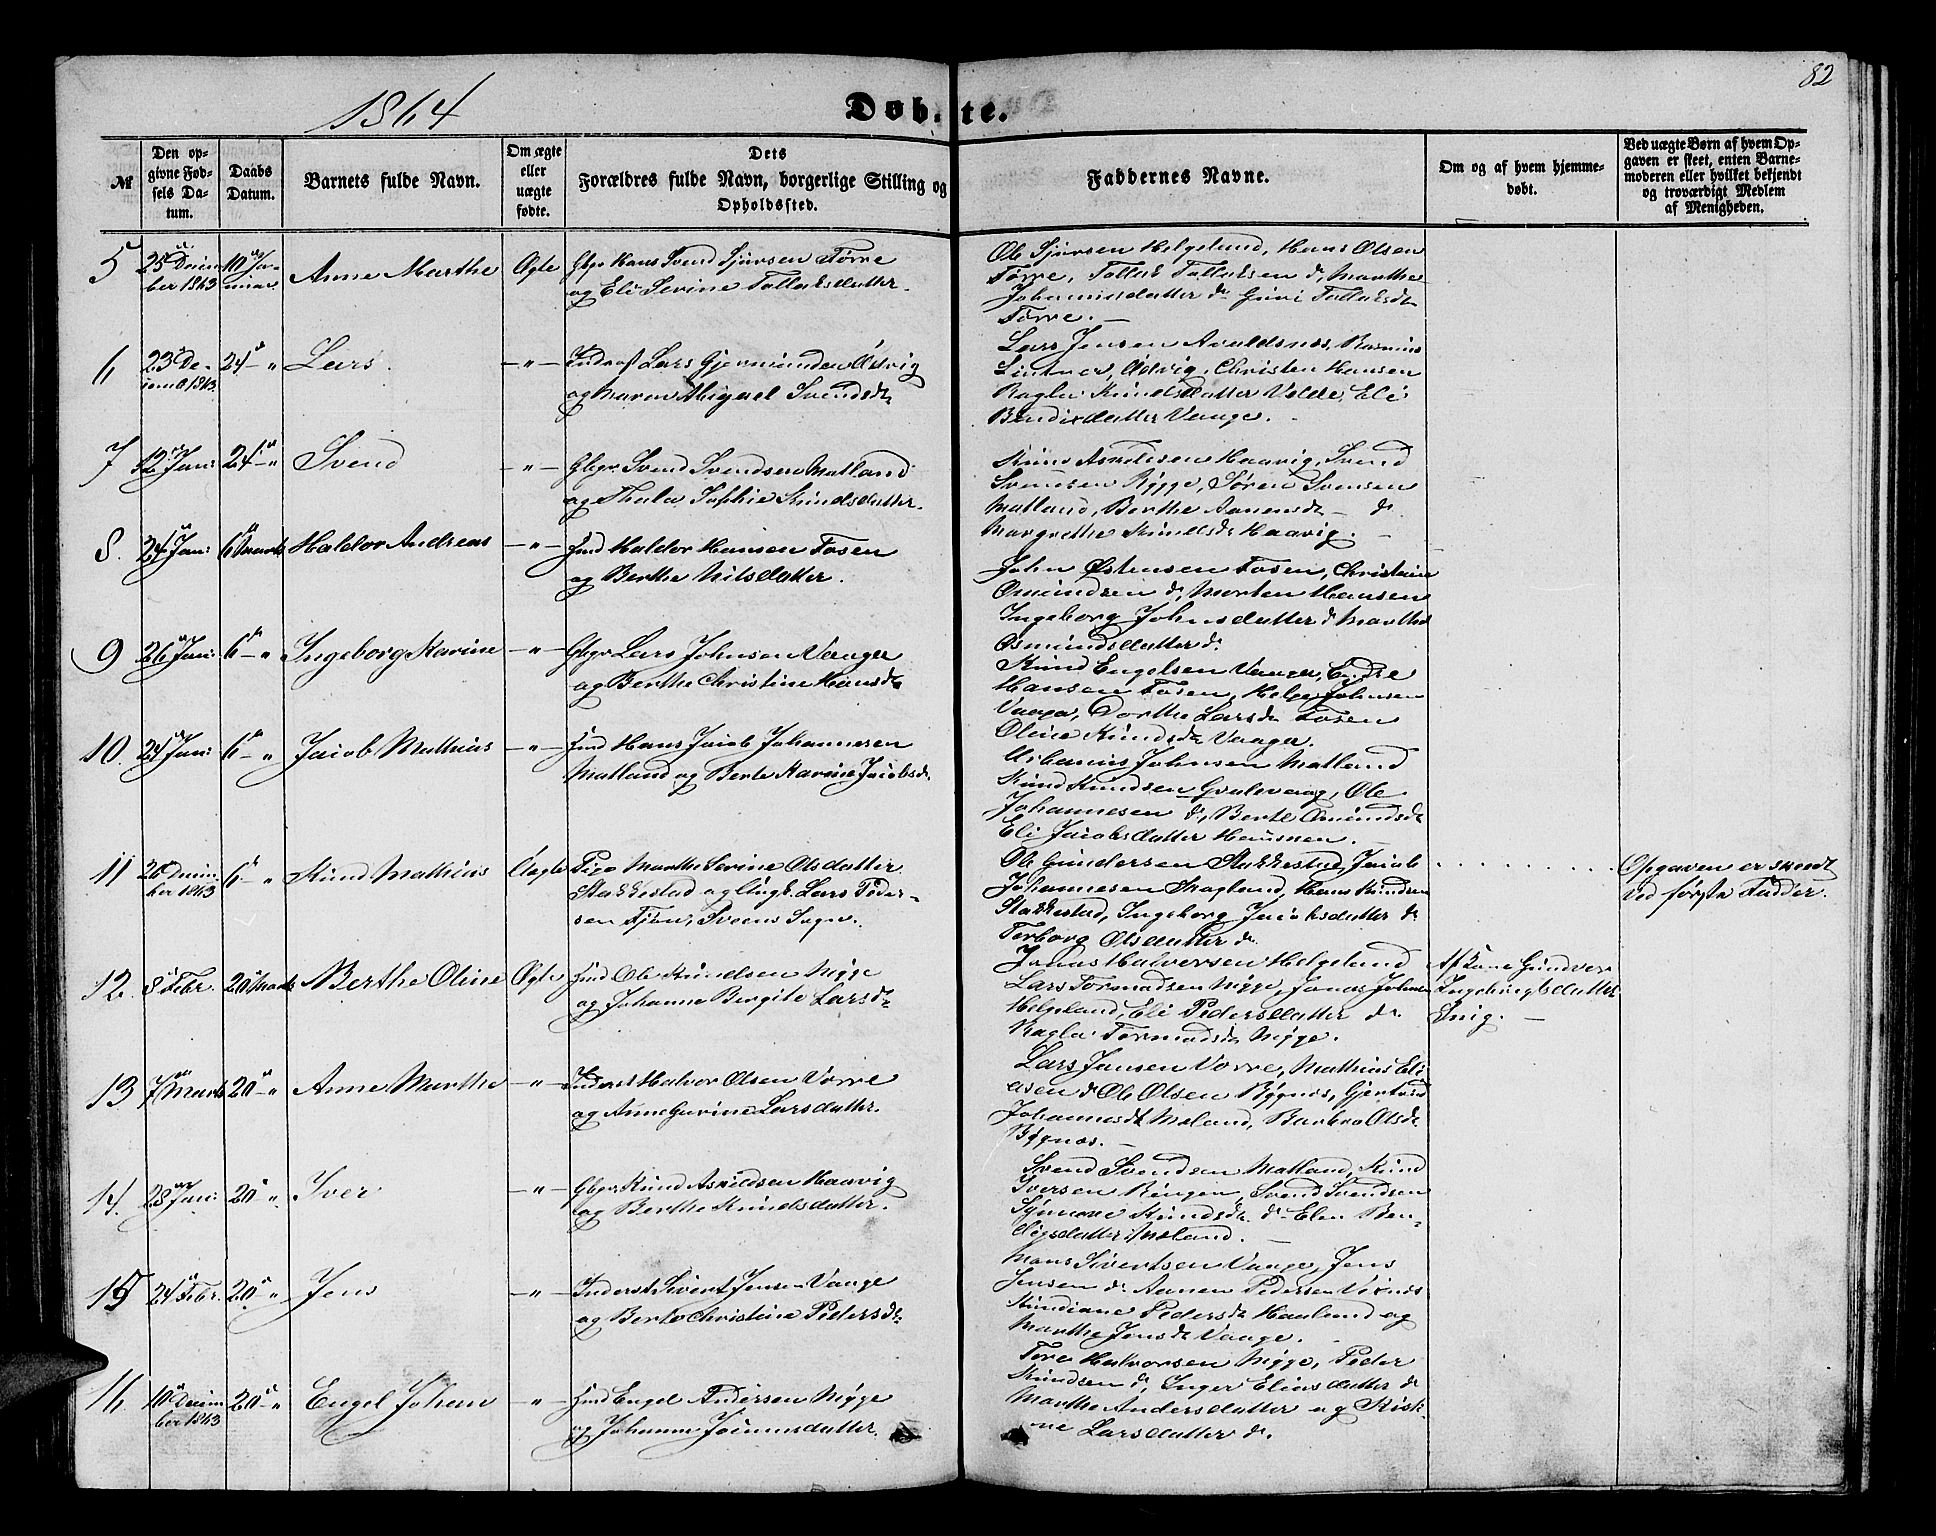 82
1864
Døbte.
№
Den opgivne Fødsels Datum.
Daabs Datum.
Barnets fulde Navn.
Om ægte eller uægte fødte.
Dets Forældres fulde Navn, borgerlige Stilling og Opholdssted.
Faddernes Navne.
Om og af hvem hjemmedøbt.
Ved uægte Børn af hvem Opgaven er skeet, enten Barnemoderen eller hvilket bekjendt og troværdigt Medlem af Menigheden.
5
25 Decem
ber 1863
10 Ja-
nuar
Anne Marthe
Ægte
Gbgr Hans Svend Sjursen Førre
og Eli Sevine Tollaksdatter.
Ole Sjursen Helgeland, Hans Olsen
Førre, Tollak Tollaksen do, Marthe
Johannisdatter do Guri Tollaksdt
Førre. —
6
23 De-
cemb 1863
24 — "
Lars
— " —
Inderst Lars Gjermundsen Østvig
og Maren Abigael Svendsdt
Lars Jensen Avaldsnes, Rasmus
Østvig, Christen Hansen
Ragla Knudsdatter Velde, Eli
Bendixdatter Vaage. —
7
12 Jan:
24 — "
Svend
— " —
Gbgr. Svend Svendsen Matland
og Thala Sophie Knudsdatter.
Knud Asveldsen Haavig, Svend
Svensen Rygge, Søren Svensen
Matland, Berthe Aanensdt — do.
Margrethe Knudsdt Haavig. —
8.
24 Jan:
6 Marts
Haldor Andreas
— " —
Hmd Haldor Hansen Fosen
og Berthe Nilsdatter.
John Østensen Fosen, Christine
Omundsen do, Morten Hansen
Ingeborg Johnsdatter do Marthe
Osmundsdatter do
9
26 Jan:
6 — "
Ingeborg Karine
— " —
Gbgr Lars Johnsen Vaager
og Berthe Christine Hansdt
Knud Engelsen Vaage, Endre
Hansen Fosen, Helge Johnsen
Vaage, Dorthe Larsdt Fosen
Oline Knudsdt Vaage.
10.
24 Jan:
6 — "
Jacob Mathias
— " —
Hmd Hans Jacob Johannesen
Matland og Berte Karine Jacobsdt.
Urbanius Johnsen Matland
Knud Knudsen Grulevaag, Ole
Johannesen do, Berte Omundsdt
Eli Jacobsdatter Hausmen. —
11
26 Decem
ber 1863
6 — "
Knud Mathias
Uægte
Pige Marthe Sevine Olsdatter
Stakkestad og Ungk. Lars Peder-
sen Fjøn, Sveens Sogn.
Ole Gundersen Stakkestad, Jacob
Johannesen Skagland, Hans Knudsen
Stakkestad, Ingeborg Jacobsdatter do
Torborg Olsdatter do
Opgaven er skeedt
ved første Fadder.
12.
8 Febr.
20 Marts
Berthe Oline
Ægte
Hmd Ole Knudsen Nygge
og Johanne Bergite Larsdt
Jonas Halversen Helgeland
Lars Tormodsen Nygge, Jonas Johnsen
Helgeland, Eli Pedersdatter do.
Ragla Tormodsdt Nygge.
Af Kone Gundver
Ingebrigtsdatter
Snig. —
13
7 Marts
20 — "
Anne Marthe
— " —
Inderst Halvor Olsen Vorre
og Anne Gurine Larsdatter.
Lars Jansen Vorre, Mathias Eli-
asen do Ole Olsen Bygnes, Gjertrud
Johannesdt Meland, Barbra Olsdt
Bygnes. —
14.
28 Jan:
20 "
Iver
— " —
Gbgr Knud Asveldsen Haavig
og Berthe Knudsdatter.
Svend Svendsen Matland, Knud
Iversen Ringen, Svend Svendsen
Synneve Knudsdt do Elen Ben-
digsdatter Meland. —
15
24 Febr.
20 "
Jens
— " —
Inderst Sivert Jensen Vaage
og Berte Christine Pedersdt
Mons Sivertsen Vaage, Jens
Jensen do Aanen Pedersen Vixnes
Knudiane Pedersdt Hauland og
Marthe Jensdt Vaage.
16
10 Decem
ber 1863
20 — "
Engel Johan
— " —
Hmd Engel Andersen Nygge
og Johanne Joramsdatter.
Tore Halvorsen Nygge, Peder
Knudsen do, Inger Eliasdatter do
Marthe Andersdatter og Kisk-
ne Larsdatter do.